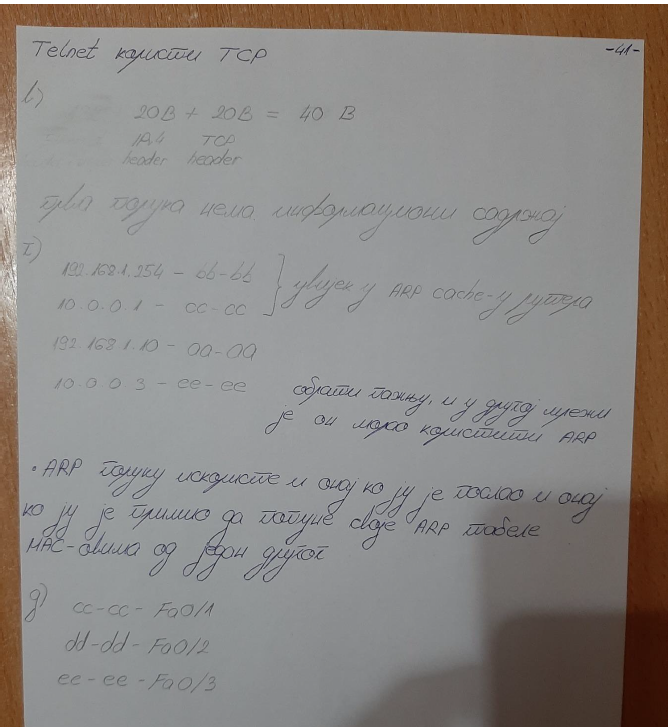 Telnet користи TCP
-41-
б)
20B + 20B = 40 B
IPv4 TCP
header header
прва порука нема информациони садржај
г)
192.168.1.254 - bb-bb
10.0.0.1 - cc-cc
увијек у ARP cache-у рутера
192.168.1.10 - aa-aa
10.0.0.3 - ee-ee
обрати пажњу, и у другој мрежи
је он морао користити ARP
• ARP поруку искористе и онај ко ју је послао и онај
ко ју је примио да попуне своје ARP табеле
MAC-овима од један другог
д)
cc-cc - Fa0/1
dd-dd - Fa0/2
ee-ee - Fa0/3